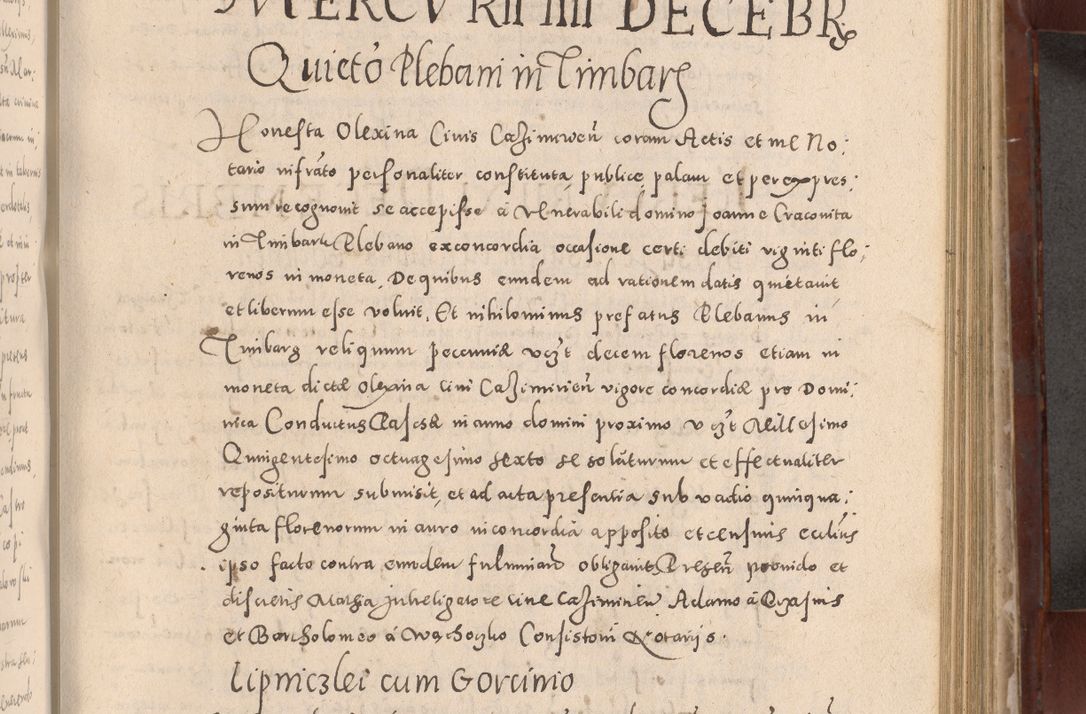 MERCVRII IIII DECEBR
Quieto Plebani in Timbarg
Honesta Olexina Civis Cazimirien coram Actis et me No:
tario infrato personaliter constituta, publice palam et per expres:
sum recognovit se accepisse a venerabili domino Joanne Cracovita
in Timbark Plebano ex concordia occasione certi debiti viginti flo:
renos in moneta, De quibus eundem ad rationem datis quietavit
et liberum esse voluit, Et nihilominus prefatus Plebanus in
Timbarg reliquum pecuniæ vczt decem florenos etiam in
moneta dictæ Olexina civi Cazimirien vigore concordiæ pro Domi:
nica Conductus Paschæ in anno domini proximo vczt Millesimo
Quingentesimo octuagesimo sexto se soluturum et effectualiter
repositurum submisit, et ad acta presentia sub vadio quinqua:
ginta florenorum in auro in concordia apposito et censuris ecclius
ipso facto contra eundem fulminand obligavit Presen provido et
discretis Mathia cive Cazimirien Adamo a
et Bartholomeo a Wachoczko Consistorii Notarijs.
Lipniczlei cum Gorcinio